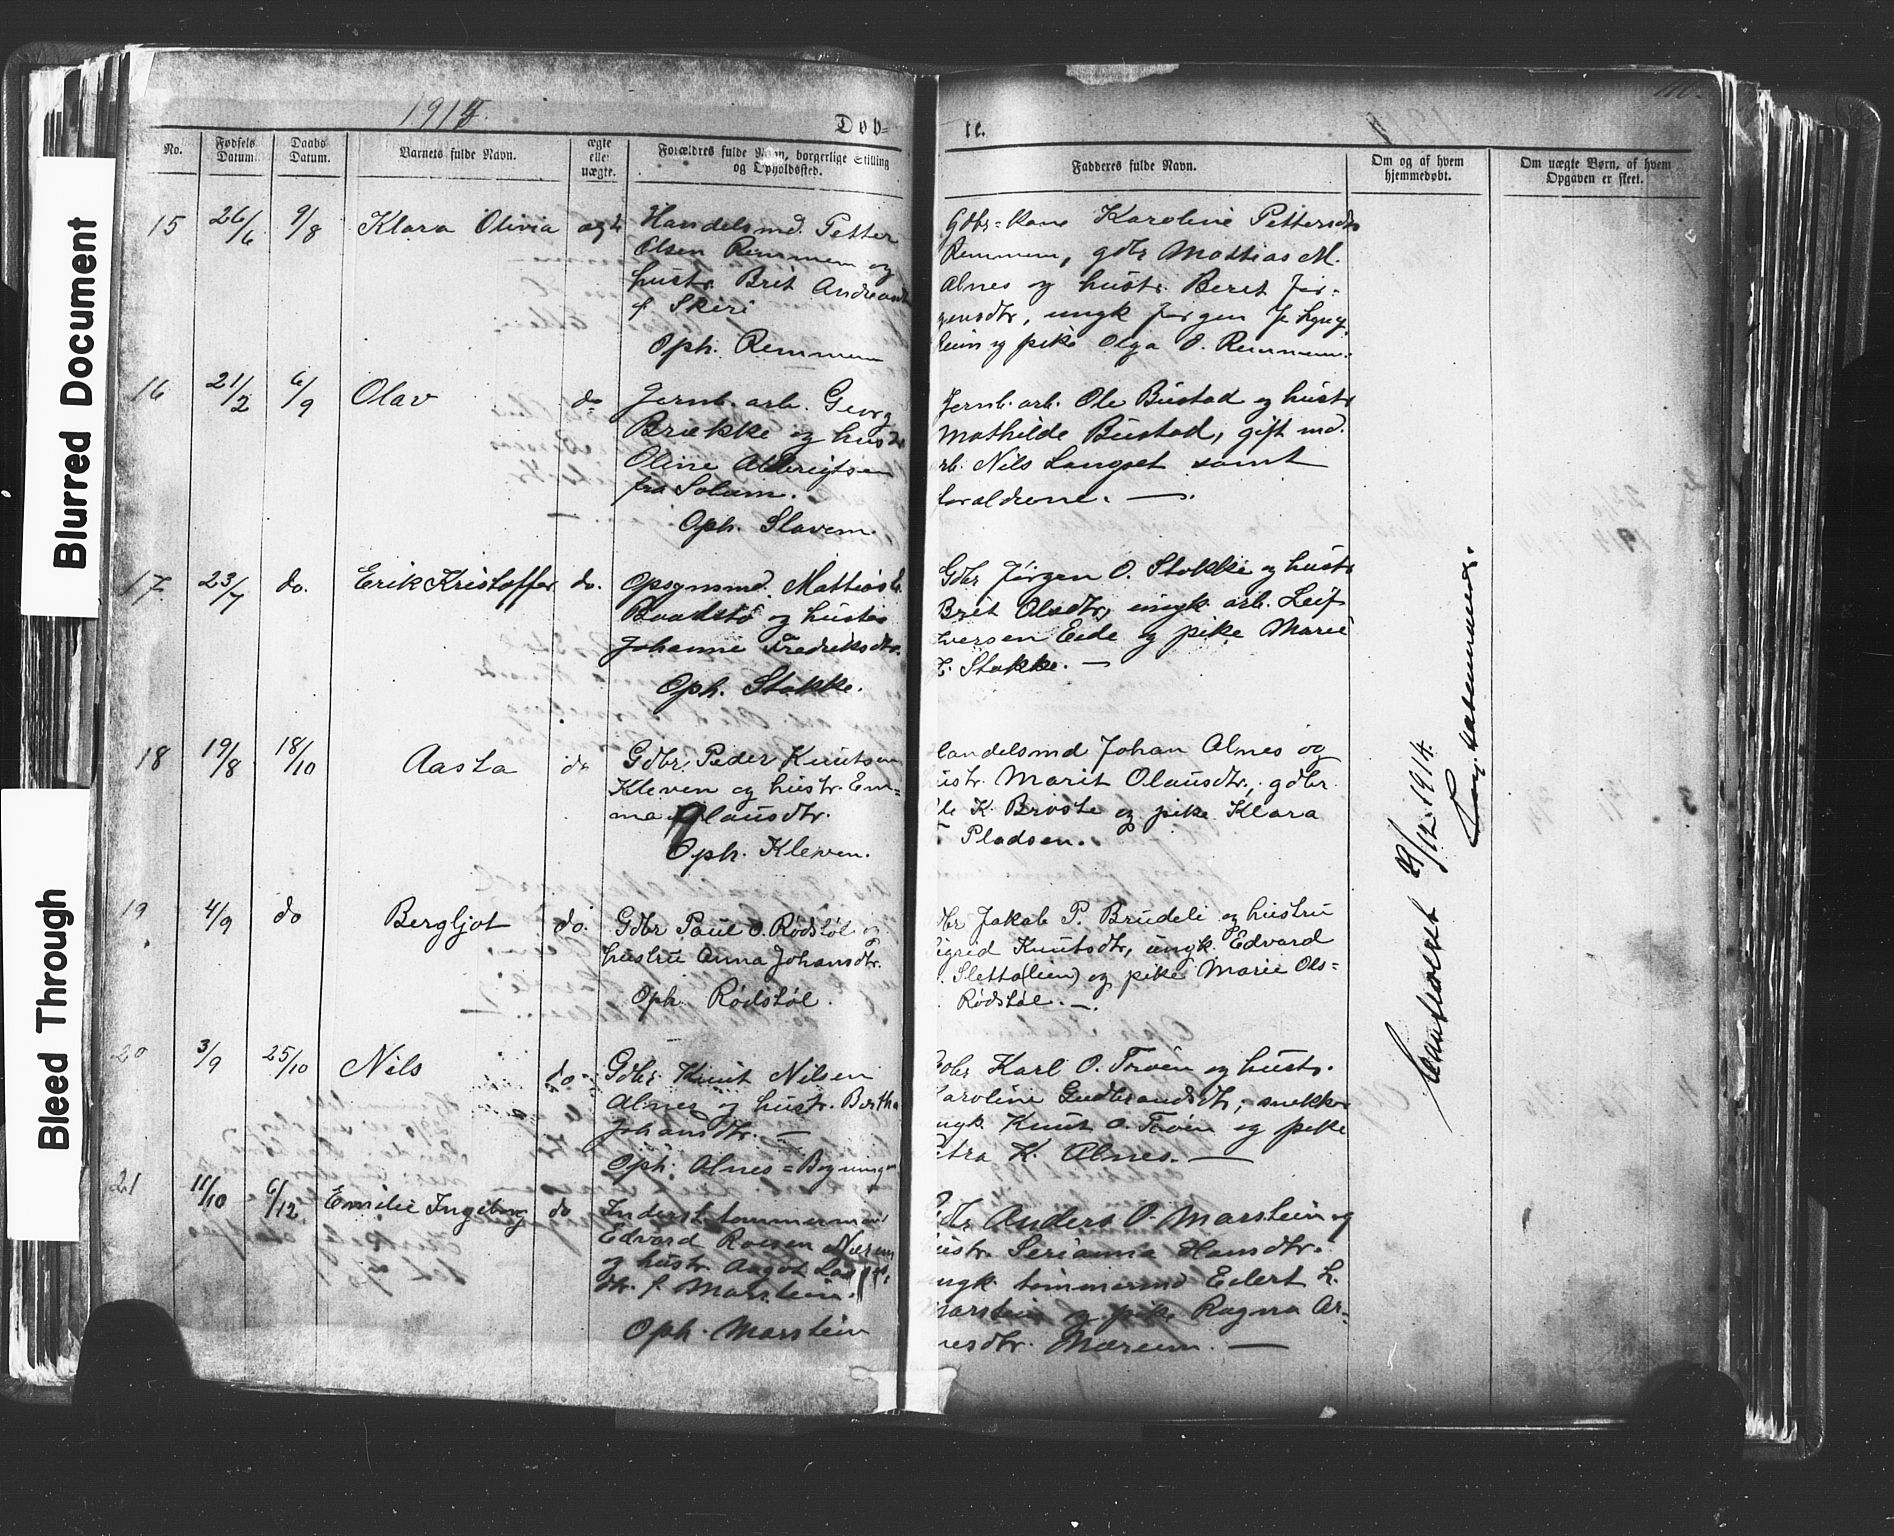 Blurred Document
Bleed Through
1914
Døb=
te.
No.
Fødsels Datum.
Daabs Datum.
Barnets fulde Navn.
ægte eller uægte.
Forældres fulde Navn, borgerlige Stilling og Opholdssted.
Fadderes fulde Navn.
Om og af hvem hjemmedøbt.
Om uægte Børn, af hvem Opgaven er skeet.
15 26/6 9/8 Klara Olivia ægte
Handelsmd. Petter
Olsen Remmem og
hustr. Brit Andreasdt
f Skiri
Oph. Remmem
Gdbr=kone Karoline Pettersdtr
Remmem, gdbr Mattias M.
Alnes og hustr. Beret Jør-
gensdtr, ungk Jørgen J.
heim og pike Olga O. Remmem.
16 21/2 6/9 Olav do
Jernb. arb. Georg
Brække og hustr
Oline Albrigtsen
fra Solum.
Oph. Slavem.
Jernb. arb. Ole Bustad og hustr
Mathilde Bustad, gift md.
arb. Nils Langset samt
forældrene. —
17 23/7 do. Erik Kristoffer do.
Opsynsmd. Mattias
Baadstø og hustru
Johanne Fredriksdtr.
Oph. Stokke.
Gdbr Jørgen O. Stokke og hustr
Brit Olsdtr, ungk. arb. Leif
Iversen Eide og pike Marie
E. Stokke. —
18 19/8 18/10 Aasta do
Gdbr. Peder Knutsen
Kleven og hustr. Em=
ma Olausdtr.
Oph. Kleven.
Handelsmd Johan Alnes og
hustr. Marit Olausdtr., gdbr.
Ole K. Brøste og pike Klara
Pladsen.
19 4/9 do Bergljot do.
Gdbr Paul O. Rødstøl og
hustru Anna Johansdtr.
Oph. Rødstøl.
Gdbr Jakob P. Brudeli og hustru
Sigrid Knutsdtr, ungk. Edvard
Sletta(lien) og pike Marie Ols=
Rødstøl. —
20 3/9 25/10 Nils do
Gdbr Knut Nilsen
Alnes og hustr. Bertha
Johansdtr. —
Oph. Alnes=Bygningen
Gdbr Karl O. Trøen og hustr.
Karoline Gudbrandsdtr, snekker
ungk Knut O. Trøen og pike
Petra K. Alnes. —
21 11/10 6/12 Emilie Ingeborg do
Inderst tømmermand
Edvard Roesen Nærem
og hustr. Aagot Lars
dtr. f. Marstein.
Oph. Marstein
Gdbr Anders O. Marstein og
hustr. Serianna Hansdtr.
ungk tømmermd Eilert L.
Marstein og pike Ragna Ar=
nesdtr. Mærem. —
Confereret 29/12. 1914.